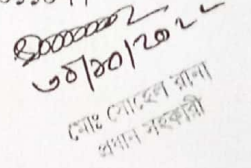 ৩০/১০/২০২২
মোঃ সোহেল রানা
প্রধান সহকারী